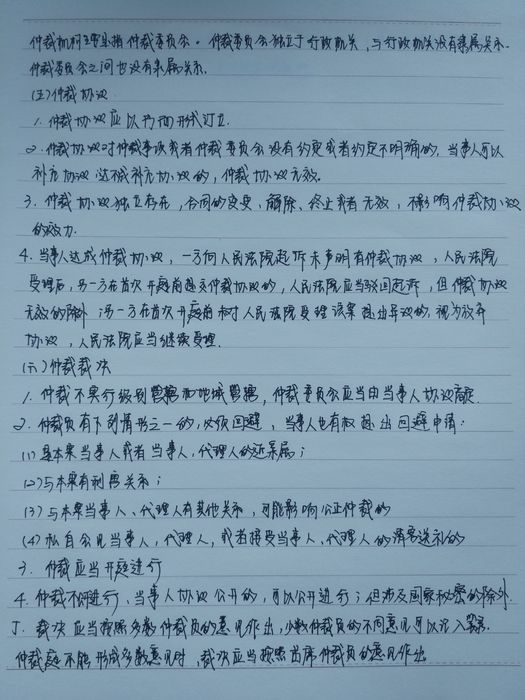 仲裁机构主要是指仲裁委员会。仲裁委员会独立于行政机关，与行政机关没有隶属关系.
仲裁委员会之间也没有隶属关系.
(五)仲裁协议
1. 仲裁协议应以书面形式订立.
2. 仲裁协议对仲裁事项或者仲裁委员会没有约定或者约定不明确的，当事人可以
补充协议 达不成补充协议的，仲裁协议无效。
3. 仲裁协议独立存在，合同的变更、解除、终止或者无效，不影响仲裁协议
的效力.
4. 当事人达成仲裁协议，一方向人民法院起诉未声明有仲裁协议，人民法院
受理后，另一方在首次开庭前提交仲裁协议的，人民法院应当驳回起诉，但仲裁协议
无效的除外 另一方在首次开庭前未对人民法院受理该案提出异议的，视为放弃
协议，人民法院应当继续受理.
(六)仲裁裁决
1. 仲裁不实行级别管辖和地域管辖，仲裁委员会应当由当事人协议商定.
2. 仲裁员有下列情形之一的，必须回避，当事人也有权提出回避申请：
(1)是本案当事人或者当事人、代理人的近亲属；
(2)与本案有利害关系；
(3)与本案当事人、代理人有其他关系，可能影响公正仲裁的
(4)私自会见当事人，代理人，或者接受当事人、代理人的请客送礼的
3. 仲裁应当开庭进行
4. 仲裁不公开进行，当事人协议公开的，可以公开进行；但涉及国家秘密的除外.
5. 裁决应当按照多数仲裁员的意见作出，少数仲裁员的不同意见可以记入笔录.
仲裁庭不能形成多数意见时，裁决应当按照首席仲裁员的意见作出